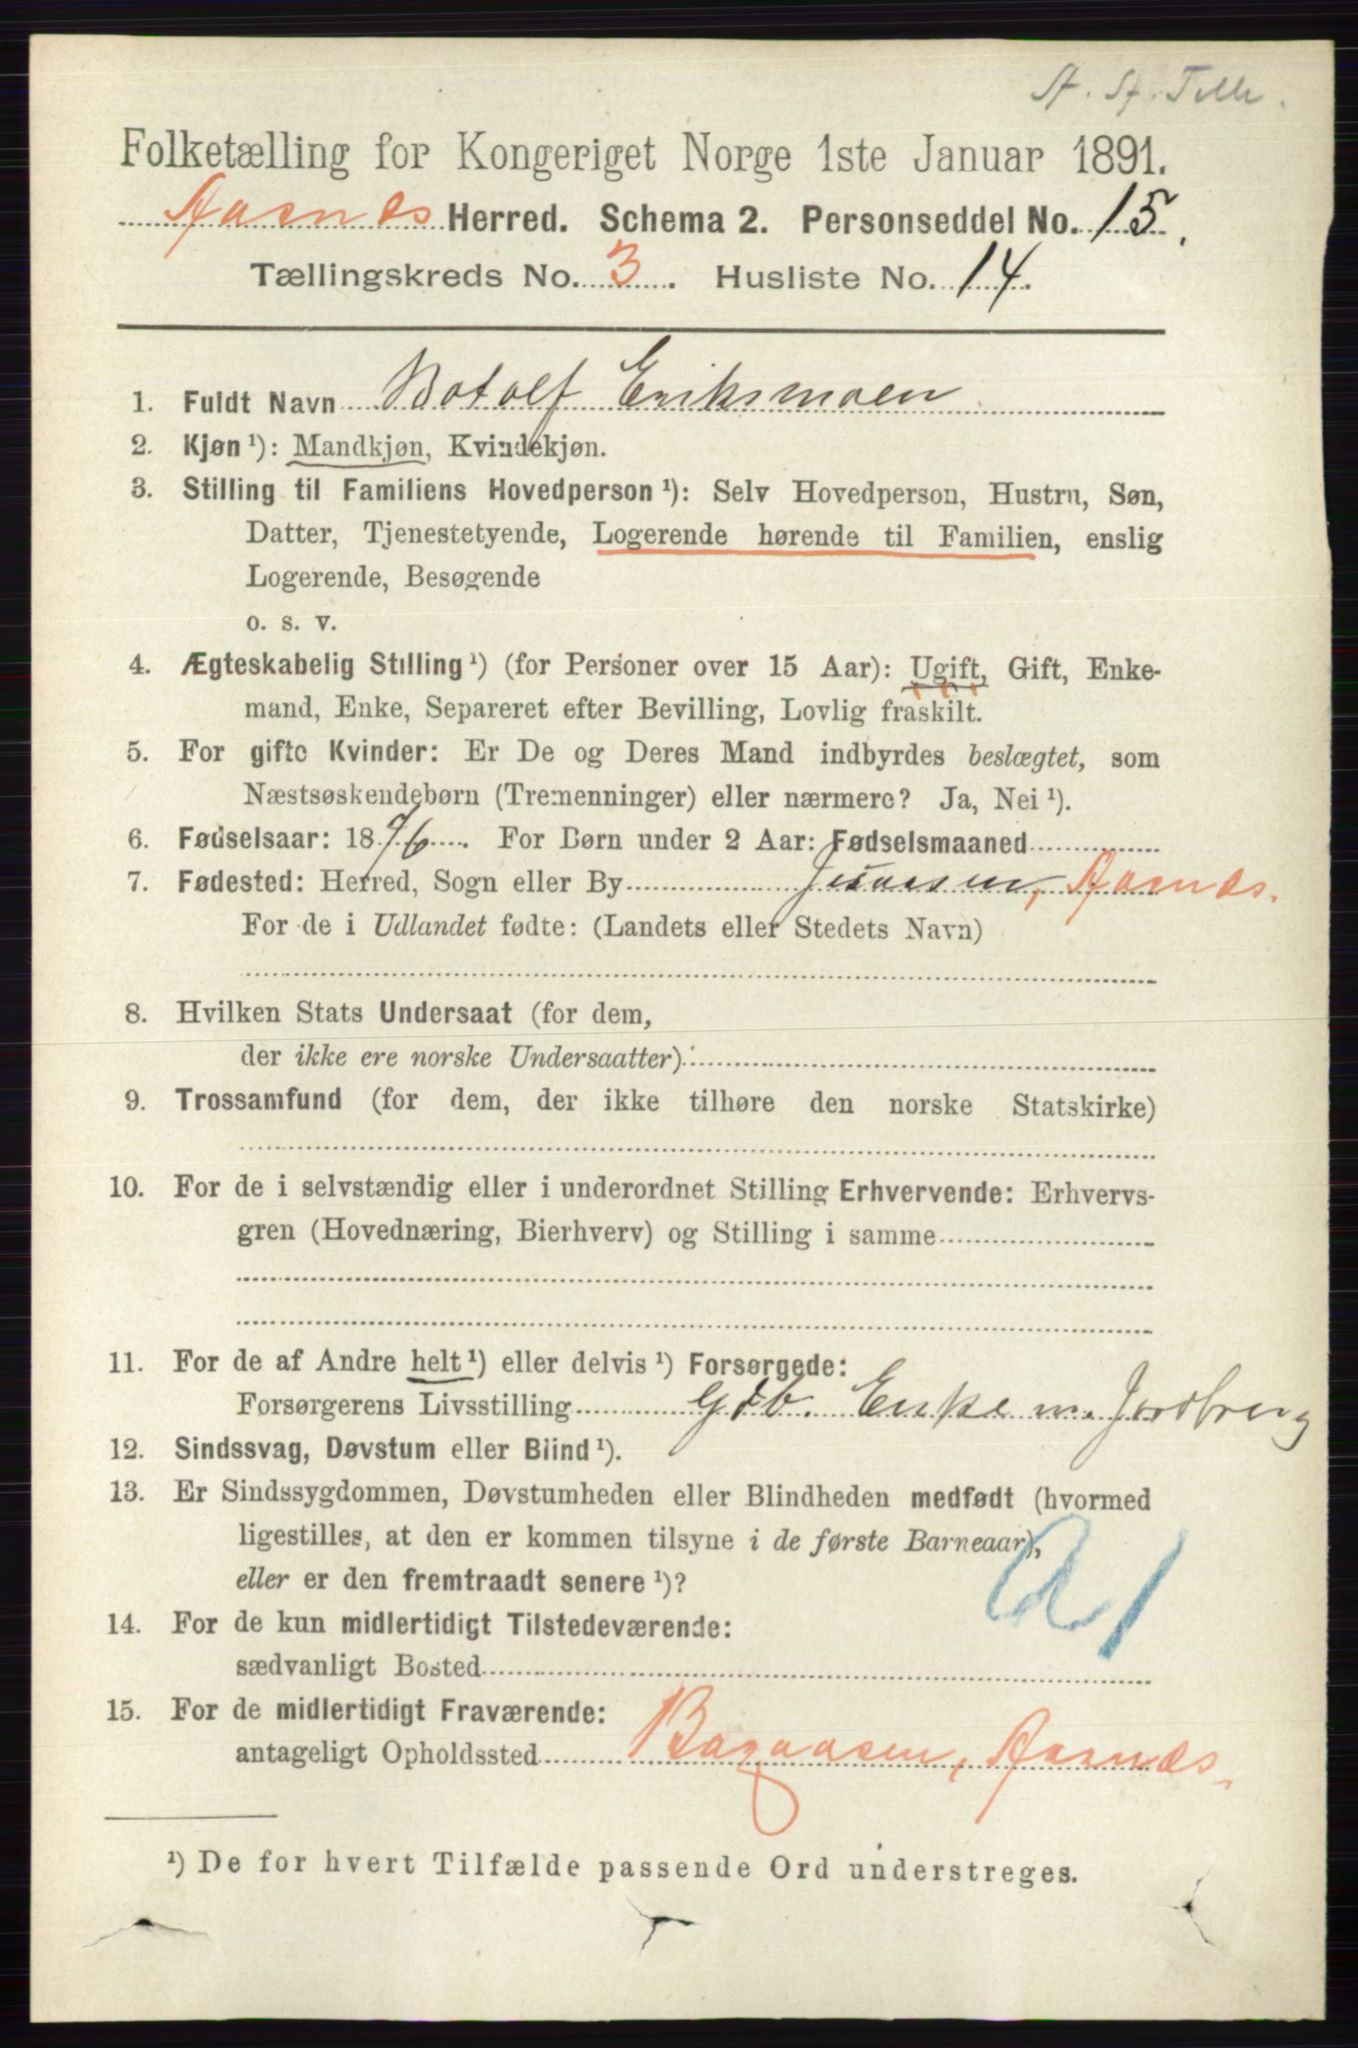 Folketælling for Kongeriget Norge 1ste Januar 1891.
Aasnæs Herred. Schema 2. Personseddel No. 15.
Tællingskreds No. 3. Husliste No. 14.
1. Fuldt Navn Botolf Eriksmoen
2. Kjøn ¹): Mandkjøn, Kvindekjøn.
3. Stilling til Familiens Hovedperson ¹): Selv Hovedperson, Hustru, Søn,
Datter, Tjenestetyende, Logerende hørende til Familien, enslig
Logerende, Besøgende
o. s. v.
4. Ægteskabelig Stilling ¹) (for Personer over 15 Aar): Ugift, Gift, Enke-
mand, Enke, Separeret efter Bevilling, Lovlig fraskilt.
5. For gifte Kvinder: Er De og Deres Mand indbyrdes beslægtet, som
Næstsøskendebørn (Tremenninger) eller nærmere? Ja, Nei ¹).
6. Fødselsaar: 1876. For Børn under 2 Aar: Fødselsmaaned
7. Fødested: Herred, Sogn eller By Aasnæs.
For de i Udlandet fødte: (Landets eller Stedets Navn)
8. Hvilken Stats Undersaat (for dem,
der ikke ere norske Undersaatter):
9. Trossamfund (for dem, der ikke tilhøre den norske Statskirke)
10. For de i selvstændig eller i underordnet Stilling Erhvervende: Erhvervs-
gren (Hovednæring, Bierhverv) og Stilling i samme
11. For de af Andre helt ¹) eller delvis ¹) Forsørgede:
Forsørgerens Livsstilling Gdb. Enke m. Jordbrug
12. Sindssvag, Døvstum eller Blind ¹).
13. Er Sindssygdommen, Døvstumheden eller Blindheden medfødt (hvormed
ligestilles, at den er kommen tilsyne i de første Barneaar),
eller er den fremtraadt senere ¹)?
14. For de kun midlertidigt Tilstedeværende:
sædvanligt Bosted
15. For de midlertidigt Fraværende:
antageligt Opholdssted Bagaasen, Aasnæs.
¹) De for hvert Tilfælde passende Ord understreges.